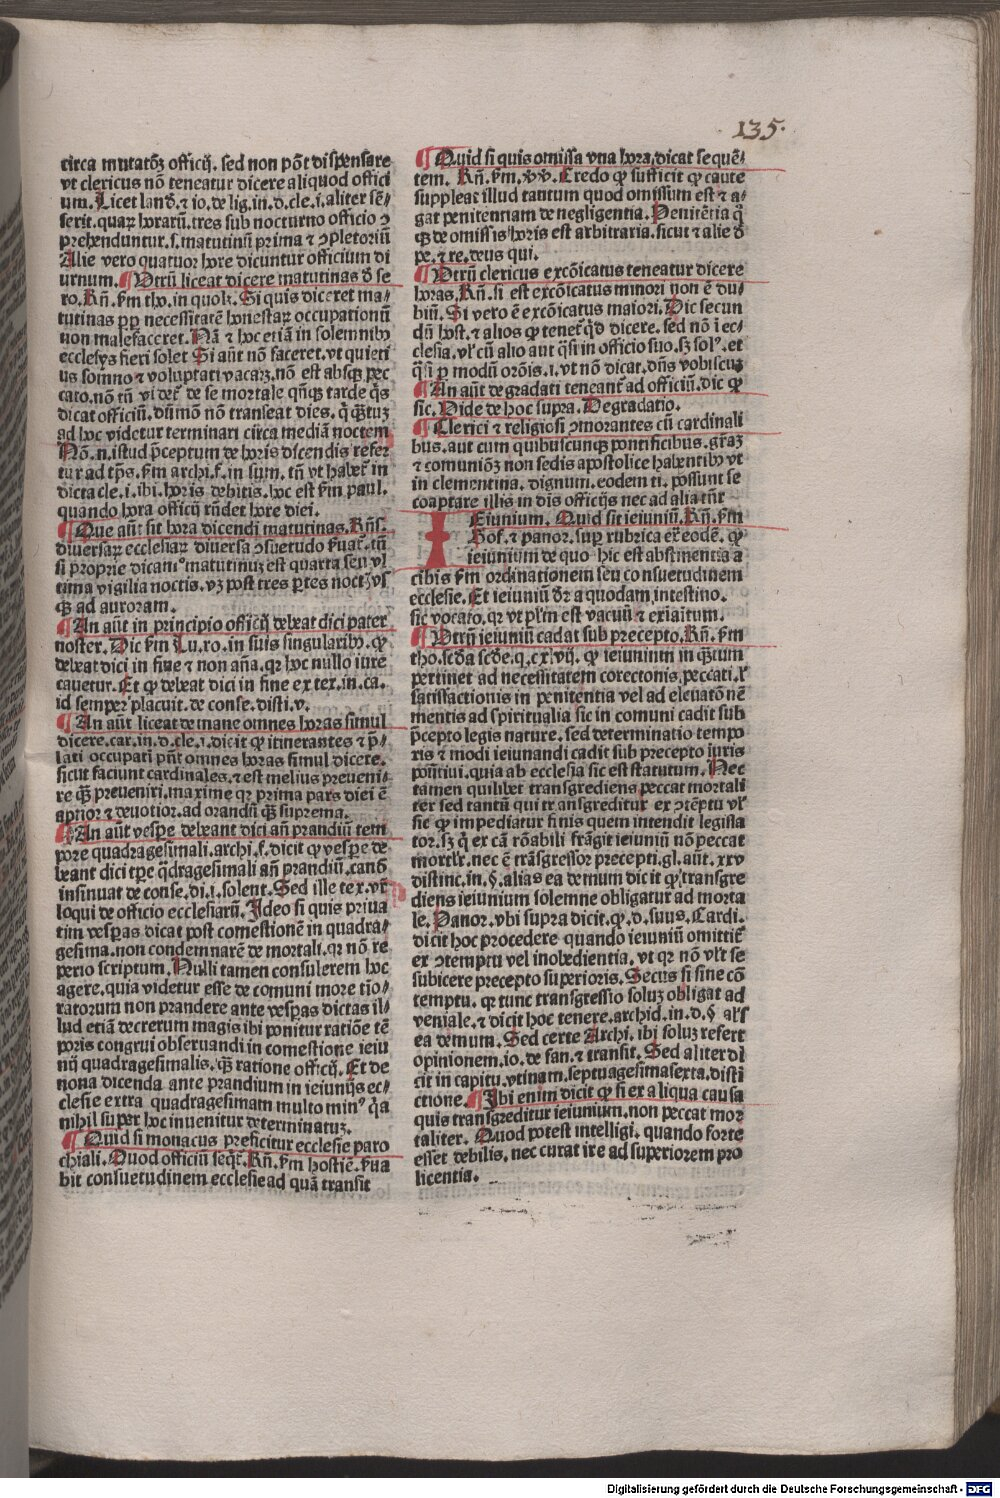 135.
circa mutatōꝫ officij. sed non pōt dispensare
vt clericus nō teneatur dicere aliquod offici
um. Licet land̄. ⁊ io. de lig. in. d. cle. i. aliter sē-
serit. quaꝝ horarū. tres sub nocturno officio ↄ
prehenduntur. s. matutinū prima ⁊ ↄpletoriū
Alie vero quatuor hore dicuntur officium di
urnum. ¶ Vtrū liceat dicere matutinas d̄ se-
ro. Rn̄. ẜm tho. in quolꝫ. Si quis diceret ma-
tutinas ꝓpꝑ necessitatē honestaꝝ occupationū
non malefaceret. Nā ⁊ hoc etiā in solemnibꝰ
ecclesijs fieri solet Si aūt nō faceret. vt quieti
us somno ⁊ voluptati vacaꝫ. nō est absqꝫ pec
cato. nō tn̄ vidētr̄ de se mortale qn̄qꝫ tarde qͥs
dicat officiū. dūmō nō transeat dies. qͥ qꝫtuꝫ
ad hoc videtur terminari circa mediā noctem
Nō. n. istud p̄ceptum de horis dicendis refer
tur ad tp̄s. ẜm archi. f. in sum. tn̄ vt habet̄ in
dicta cle. i. ibi. horis debitis. hoc est ẜm paul.
quando hora officij rn̄det hore diei.
¶ Que aūt sit hora dicendi matutinas. Rn̄s.
diuersaꝝ ecclesiaꝝ diuersa ↄsuetudo ẜuat̄. tn̄
si proprie dicamꝰ matutinuꝫ est quarta seu vl
tima vigilia noctis. vꝫ post tres ꝑtes noctꝭ vsꝫ
qꝫ ad auroram.
¶ An aūt in principio officij debeat dici pater
noster. Dic ẜm Lu. ro. in suis singularibꝰ. ꝙ
debeat dici in fine ⁊ non an̄a. qꝛ hoc nullo iure
cauetur. Et ꝙ debeat dici in fine ex tex. in. ca.
id semper placuit. de conse. disti. v.
¶ An aūt liceat de mane omnes horas simul
dicere. car. in. d. cle. i. dicit ꝙ itinerantes ⁊ p̄-
lati occupati pn̄t omnes horas simul dicere.
sicut faciunt cardinales. ⁊ est melius preueni-
re qꝫ preueniri. maxime qꝛ prima pars diei ē
aptior ⁊ deuotior. ad orandū qꝫ suprema.
¶ An aūt vespe debeant dici an̄ prandiū tem
pore quadragesimali. archi. f. dicit ꝙ vespe de
beant dici tꝑe qͣdragesimali an̄ prandiū. can̄
insinuat de conse. di. i. solent. Sed ille tex. vr̄
loqui de officio ecclesiarū. Ideo si quis priua
tim vesꝑas dicat post comestionē in quadra-
gesima. non condemnarē de mortali. qꝛ nō re
perio scriptum. Nulli tamen consulerem hoc
agere. quia videtur esse de comuni more tio-
ratorum non prandere ante vesꝑas dictas il-
lud etiā decretum magis ibi ponitur ratiōe tē
poris congrui obseruandi in comestione ieiu
nij quadragesimalis. qꝫ ratione officij. Et de
nona dicenda ante prandium in ieiunijs ec-
clesie extra quadragesimam multo minꝰ qͣa
nihil super hoc inuenitur determinatuꝫ.
¶ Quid si monacus preficitur ecclesie paro
chiali. Quod officiū seqͣt̄. Rn̄. ẜm hostiē. ẜua
bit consuetudinem ecclesie ad quā transit
¶ Quid si quis omissa vna hora. dicat sequē-
tem. Rn̄. ẜm. vv. Credo ꝙ sufficit ꝙ caute
suppleat illud tantum quod omissum est ⁊ a-
gat penitentiam de negligentia. Penitētia qͥ
qꝫ de omissis horis est arbitraria. sicut ⁊ alie d̄
pe. ⁊ re. deus qui.
¶ Vtrū clericus excōicatus teneatur dicere
horas. Rn̄. si est excōicatus minori non ē du-
biū. Si vero ē excōicatus maiori. Dic secun
dū host. ⁊ alios ꝙ tenet̄ qͥd dicere. sed nō ī ec-
clesia. vl̓ cū alio aut qͣsi in officio suo. sꝫ solꝰ. et
qͣsi ꝑ modū orōis. i. vt nō dicat. dn̄s vobiscuꝫ
¶ An aūt degradati teneant̄ ad officiū. dic ꝙ
sic. Vide de hoc supra. Degradatio.
¶ Clerici ⁊ religiosi ↄmorantes cū cardinali
bus. aut cum quibuscunqꝫ pontificibus. gr̄aꝫ
⁊ comuniōꝫ non sedis apostolice habentibꝰ vt
in clementina. dignum. eodem ti. possunt se
coaptare illis in diīs officijs nec ad alia tn̄r
Ieiunium. Quid sit ieiuniū. Rn̄. ẜm
Hof. ⁊ panor. suꝑ rubrica ex̄ eodē. ꝙ
ieiunium de quo hic est abstinentia a
cibis ẜm ordinationem seu consuetudinem
ecclesie. Et ieiuniū dr̄ a quodam intestino.
sic vocato. qꝛ vt pl̓m est vacuū ⁊ exianitum.
¶ Vtrū ieiuniū cadat sub precepto. Rn̄. ẜm
tho. scd̄a scd̄e. q. cxlvij. ꝙ ieiunium in qꝫtum
pertinet ad necessitatem corectonis peccati. l̓
satissactionis in penitentia vel ad eleuatōnē
mentis ad spiritualia sic in comuni cadit sub
p̄cepto legis nature. sed determinatio tempo
ris ⁊ modi ieiunandi cadit sub precepto iuris
positiui. quia ab ecclesia sic est statutum. Nec
tamen quilibet transgrediens peccat mortali
ter sed tantū qui transgreditur ex ↄtēptu vl̓
sic ꝙ impediatur finis quem intendit legisla
tor. sꝫ qͥ ex cā rōabili frāgit ieiuniū nō peccat
mortl̓r. nec ē trāsgressor precepti. gl. aūt. xxv
distinc. in. §. alias ea demum dicit ꝙ transgre
diens ieiunium solemne obligatur ad morta
le. Panor. vbi supra dicit. ꝙ. d. suus. Cardi.
dicit hoc procedere quando ieiuniū omittit̄
ex ↄtemptu vel inobedientia. vt qꝛ non vl̓t se
subicere precepto superioris. Secus si sine cō
temptu. qꝛ tunc transgressio soluꝫ obligat ad
veniale. ⁊ dicit hoc tenere. archid. in. d. § al̓s
ea demum. Sed certe Archi. ibi soluꝫ refert
opinionem. io. de fan. ⁊ transit. Sed aliter di
cit in capitu. vtinam. septuagesimasexta. disti
ctione. ¶ Ibi enim dicit ꝙ si ex aliqua causa
quis transgreditur ieiunium. non peccat mor
taliter. Quod potest intelligi. quando forte
esset debilis. nec curat ire ad superiorem pro
licentia.
Digitalisierung gefördert durch die Deutsche Forschungsgemeinschaft - DFG